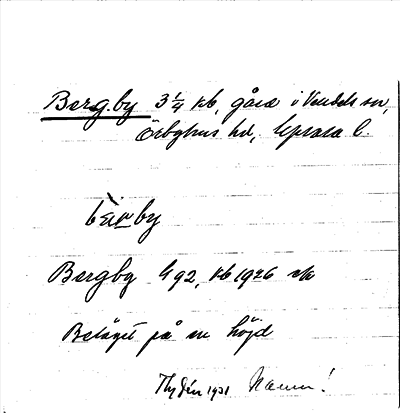 Bergby 3 1/4 kb, gård i Vendels sn,
Örbyhus hd, Uppsala l.
by
Bergby G 92, kb 1926
Beläget på en höjd
Thydén 1931 Namn!